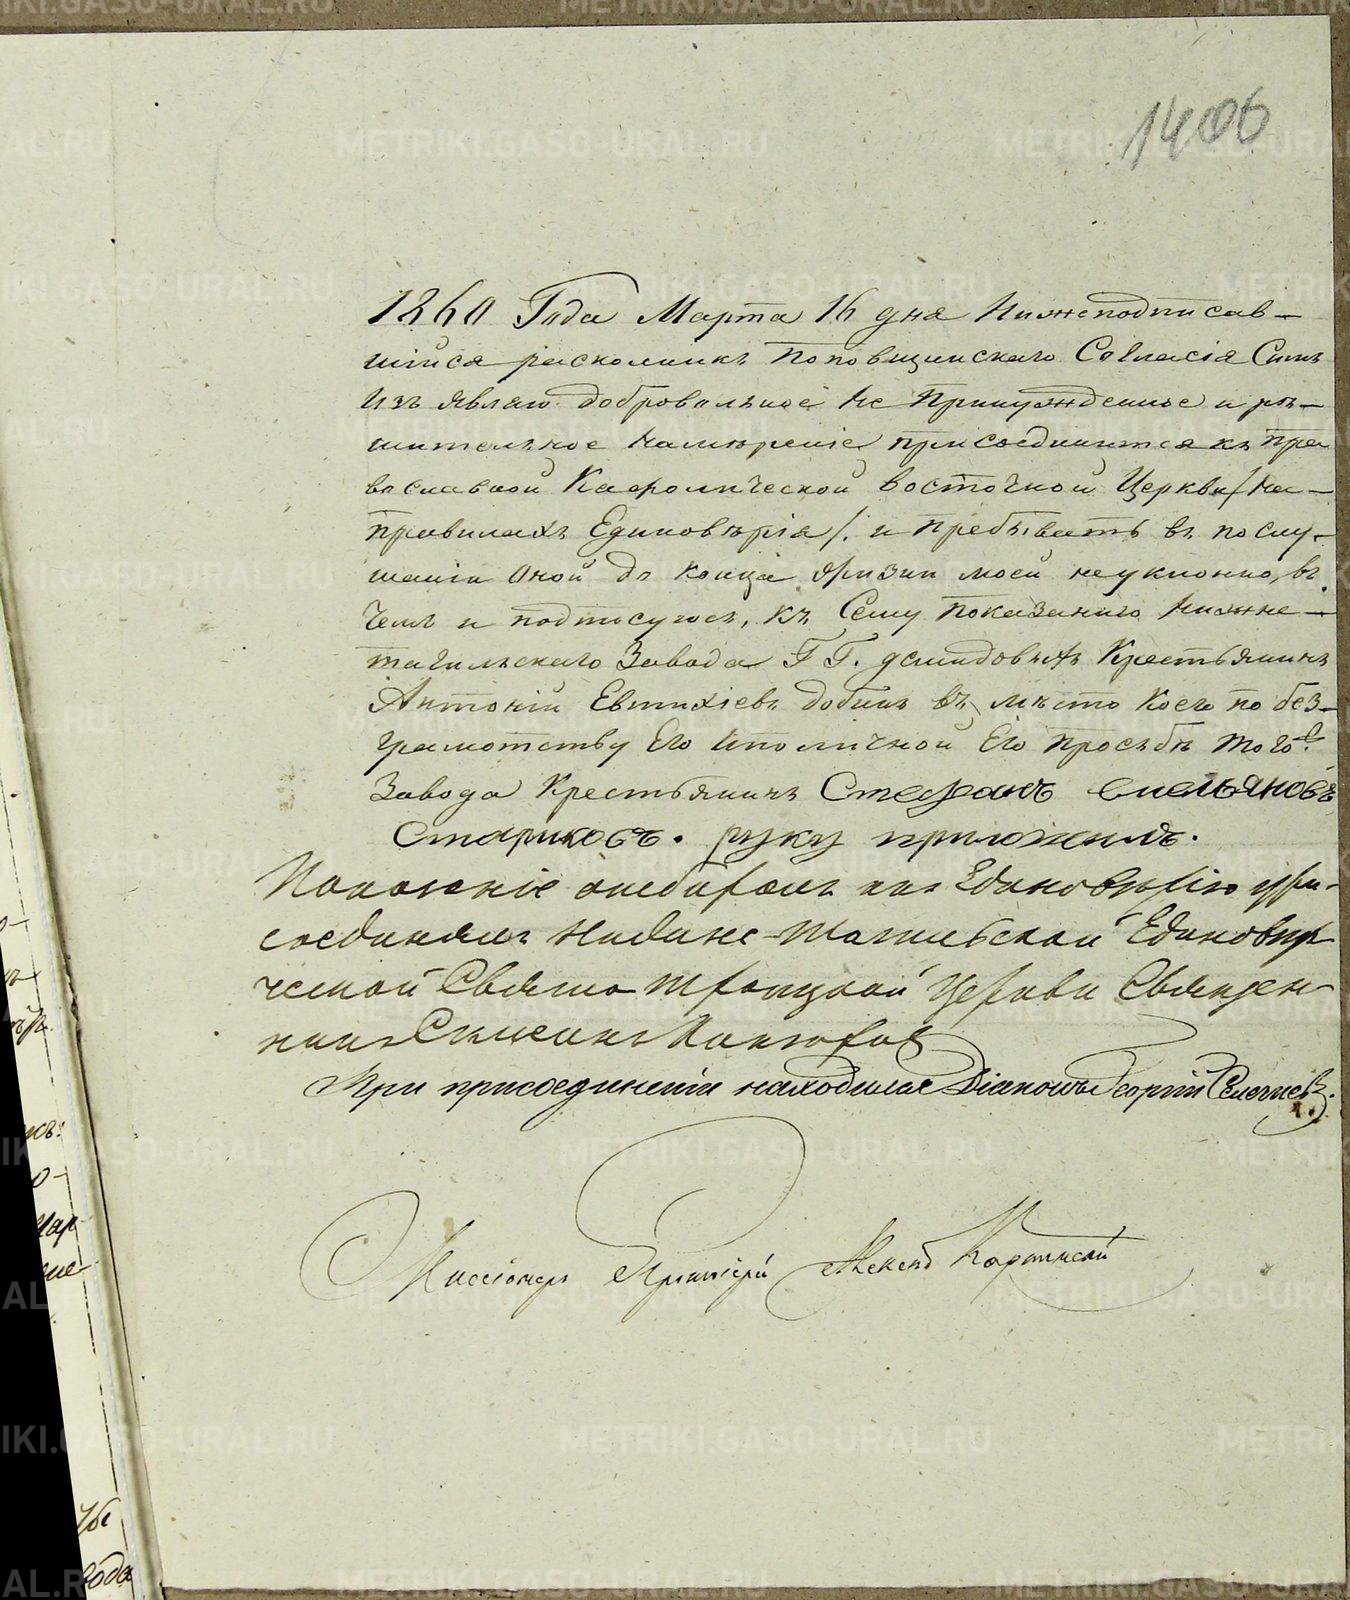 1406
1860 Года Марта 16 дня Нижеподписав-
шійся раскольникъ поповщинскаго Согласія Симъ
Изъявляю добровольное не Принужденное и рѣ-
шительное намѣреніе присоединится къ пра
вославной Каѳолической восточной Церкви /на-
правилахъ Единовѣрія/. и пребывать въ послу-
шаніи Оной до конца жизни моей неуклонно, въ
чемъ и подписуюсь, къ Сему показанію Нижне-
тагильскаго Завода ГГ. демидовыхъ Крестьянинъ
Антоній Евтихіевъ въ мѣсто коего по без-
грамотству Его Иполичной Его прозьбѣ того
Завода Крестьянинъ Стефанъ емельяновъ
Стариковъ. руку приложилъ.
къ Единовѣрію при-
соединялъ Нижне-Тагильской Единовѣр
ческой Свято Троицкой Церкви Священ-
никъ
При присоединеніи находился Діаконъ Георгій
Миссіонеръ